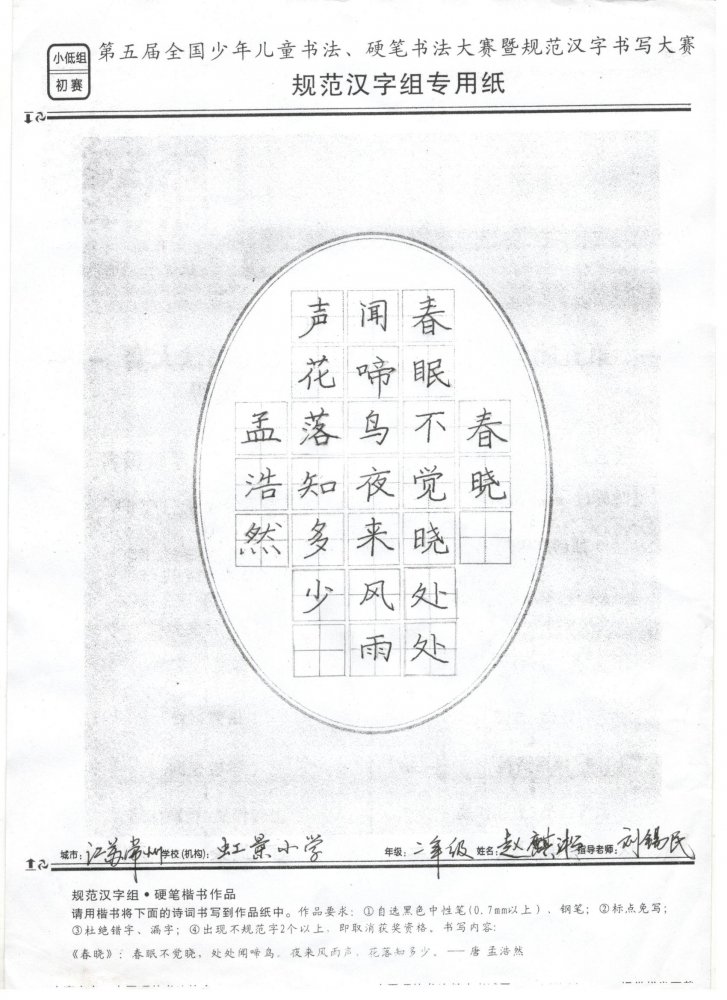 小低组
初赛
第五届全国少年儿童书法、硬笔书法大赛暨规范汉字书写大赛
规范汉字组专用纸
春晓
春眠不觉晓处处
闻啼鸟夜来风雨
声花落知多少
孟浩然
城市：江苏常州 学校(机构)：虹景小学 年级：二年级 姓名：赵麒淞 指导老师：刘锡民
规范汉字组·硬笔楷书作品
请用楷书将下面的诗词书写到作品纸中。作品要求：①自选黑色中性笔(0.7mm以上)、钢笔；②标点免写；
③杜绝错字、漏字；④出现不规范字2个以上，即取消获奖资格。书写内容：
《春晓》：春眠不觉晓，处处闻啼鸟。夜来风雨声，花落知多少。——唐 孟浩然